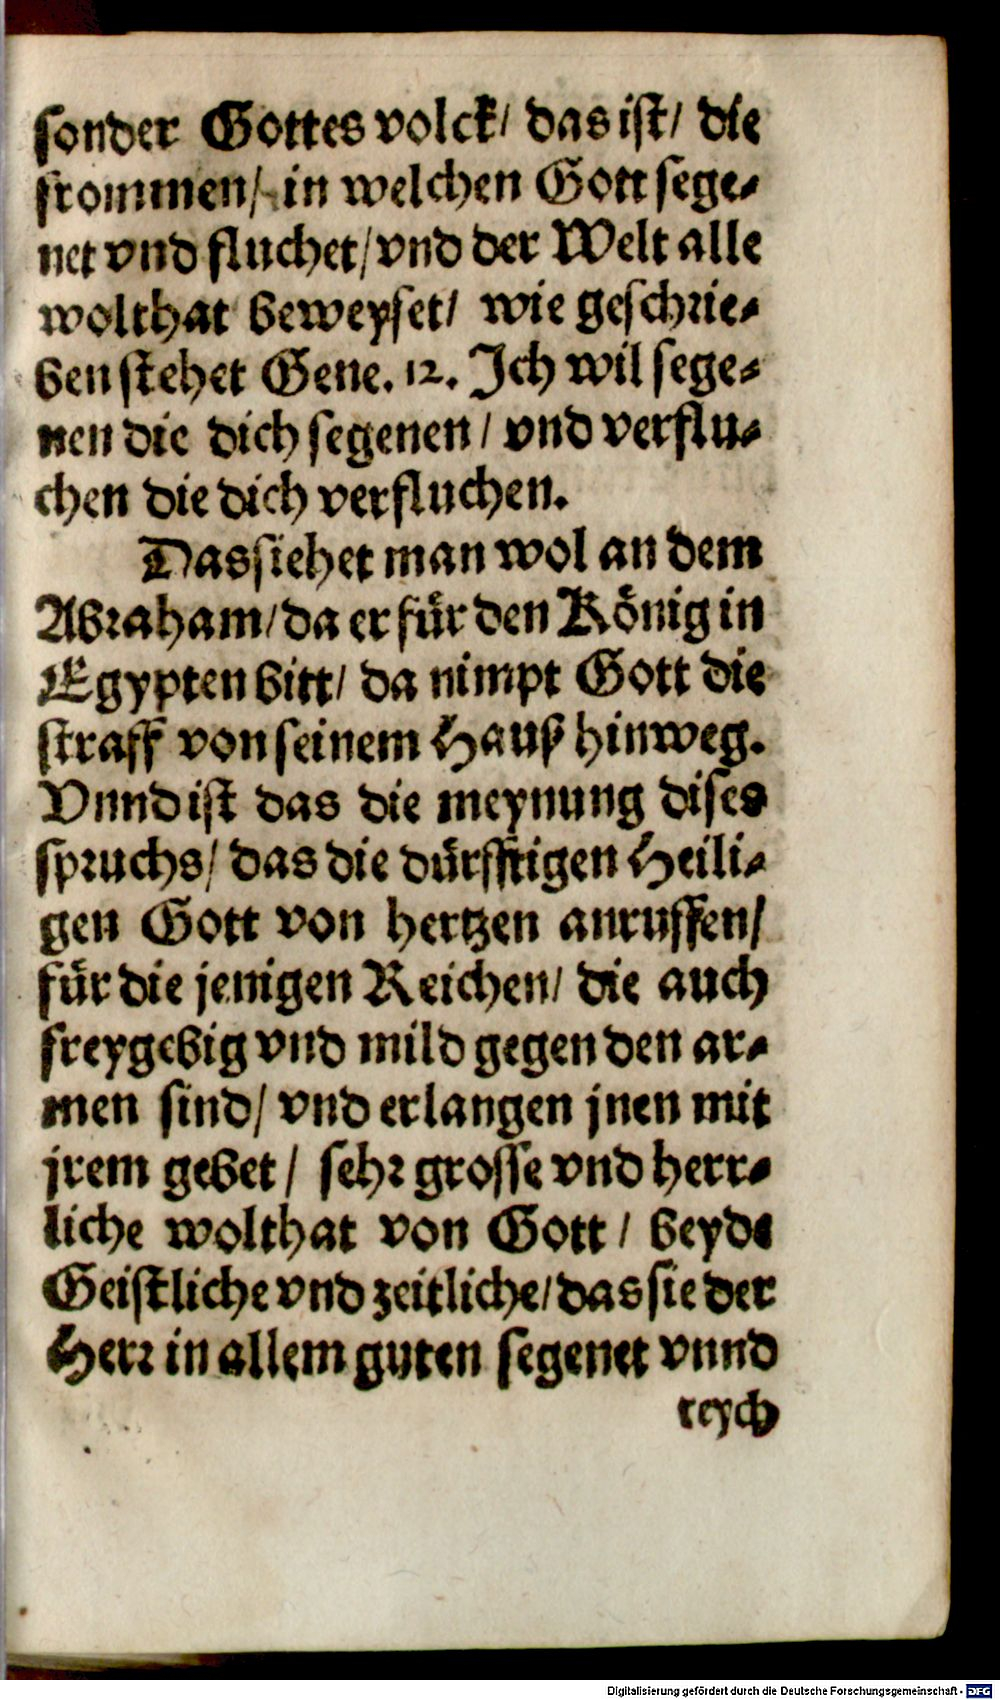 sonder Gottes volck/ das ist/ die
frommen/ in welchen Gott sege-
net vnd fluchet/ vnd der Welt alle
wolthat beweyset/ wie geschrie-
ben stehet Gene. 12. Ich wil sege-
nen die dich segenen / vnd verflu-
chen die dich verfluchen.
Das siehet man wol an dem
Abraham/ da er für den König in
Egypten bitt/ da nimpt Gott die
straff von seinem Hauß hinweg.
Vnnd ist das die meynung dises
spruchs/ das die dürfftigen Heili-
gen Gott von hertzen anruffen/
für die jenigen Reichen/ die auch
freygebig vnd mild gegen den ar-
men sind/ vnd erlangen jnen mit
jrem gebet / sehr grosse vnd herr-
liche wolthat von Gott / beyde
Geistliche vnd zeitliche/ das sie der
Herr in allem guten segenet vnnd
reych
Digitalisierung gefördert durch die Deutsche Forschungsgemeinschaft - DFG